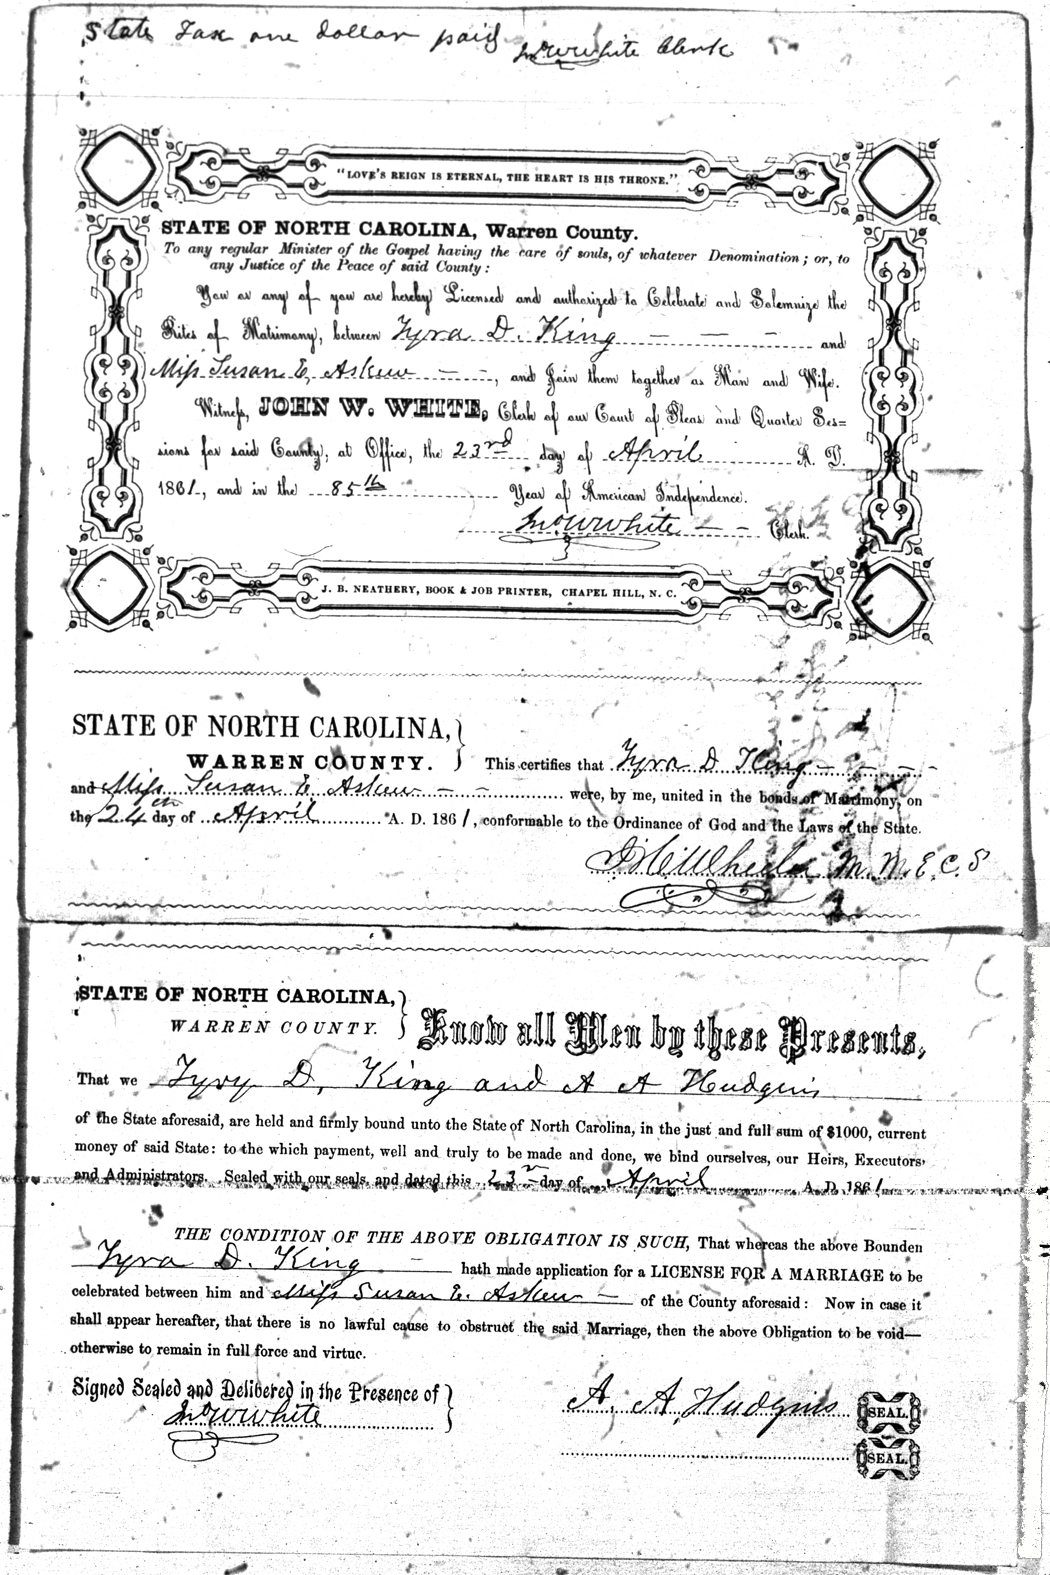 State Tax one dollar paid
Jno W White Clerk
"LOVE'S REIGN IS ETERNAL, THE HEART IS HIS THRONE."
STATE OF NORTH CAROLINA, Warren County.
To any regular Minister of the Gospel having the care of souls, of whatever Denomination; or, to
any Justice of the Peace of said County:
You or any of you are hereby Licensed and authorized to Celebrate and Solemnize the
Rites of Matrimony, between Tyra D. King — — — and
Miss Susan E. Askew - - -, and Join them together as Man and Wife.
Witness, JOHN W. WHITE, Clerk of our Court of Pleas and Quarter Ses=
sions for said County, at Office, the 23rd day of April A. D.
1861, and in the 85th Year of American Independence.
Jno W White - - Clerk.
J. B. NEATHERY, BOOK & JOB PRINTER, CHAPEL HILL, N. C.
STATE OF NORTH CAROLINA,
WARREN COUNTY. } This certifies that Tyra D King - - - -
and Miss Susan E Askew - - were, by me, united in the bonds of Matrimony, on
the 24th day of April A. D. 1861, conformable to the Ordinance of God and the Laws of the State.
Wheeler M. M. E. C. S
STATE OF NORTH CAROLINA,
WARREN COUNTY. } Know all Men by these Presents,
That we Tyry D, King and A A Hudgins
of the State aforesaid, are held and firmly bound unto the State of North Carolina, in the just and full sum of $1000, current
money of said State: to the which payment, well and truly to be made and done, we bind ourselves, our Heirs, Executors
and Administrators. Sealed with our seals, and dated this 23 day of April A. D. 1861
THE CONDITION OF THE ABOVE OBLIGATION IS SUCH, That whereas the above Bounden
Tyra D. King — hath made application for a LICENSE FOR A MARRIAGE to be
celebrated between him and Miss Susan E. Askew — of the County aforesaid: Now in case it
shall appear hereafter, that there is no lawful cause to obstruct the said Marriage, then the above Obligation to be void—
otherwise to remain in full force and virtue.
Signed Sealed and Delibered in the Presence of }
Jno W White
A. A, Hudgins SEAL.
SEAL.